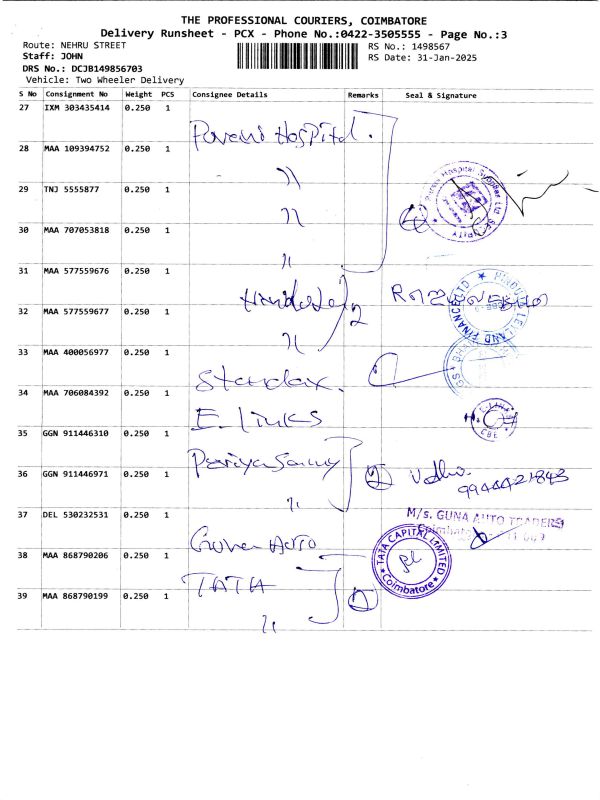 THE PROFESSIONAL COURIERS, COIMBATORE
Delivery Runsheet - PCX - Phone No.:0422-3505555 - Page No.:3
Route: NEHRU STREET
RS No.: 1498567
Staff: JOHN
RS Date: 31-Jan-2025
DRS No.: DCJB149856703
Vehicle: Two Wheeler Delivery
S No Consignment No Weight PCS Consignee Details Remarks Seal & Signature
27 IXM 303435414 0.250 1
Hospital.
28 MAA 109394752 0.250 1
29 TNJ 5555877 0.250 1
30 MAA 707053818 0.250 1
31 MAA 577559676 0.250 1
32 MAA 577559677 0.250 1
33 MAA 400056977 0.250 1
34 MAA 706084392 0.250 1
E. links
35 GGN 911446310 0.250 1
36 GGN 911446971 0.250 1
37 DEL 530232531 0.250 1
M/s. GUNA AUTO TRADERS
Coimbatore
Guna Auto
38 MAA 868790206 0.250 1
TATA CAPITAL LIMITED
Coimbatore
TATA
39 MAA 868790199 0.250 1